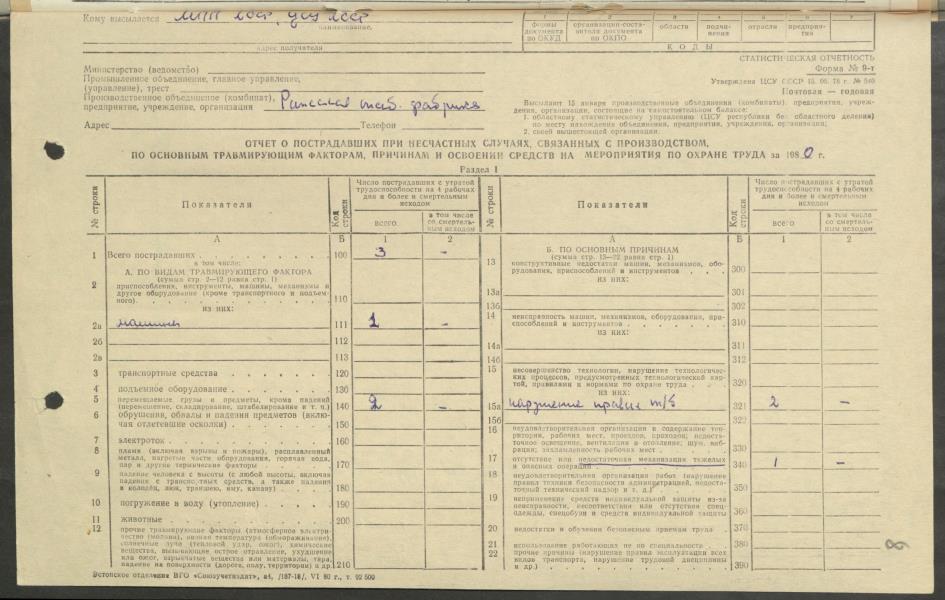 Кому высылается МПП ЭССР, ЦСУ ЭССР
наименование,
адрес получателя
1 2 3 4 5 6 7
формы документа по ОКУД
организации-составителя документа по ОКПО
области
подчинения
отрасли
предприятия
КОДЫ
СТАТИСТИЧЕСКАЯ ОТЧЕТНОСТЬ
Форма № 9-т
Утверждена ЦСУ СССР 15. 06. 78 г. № 540
Почтовая — годовая
Министерство (ведомство)
Промышленное объединение, главное управление,
(управление), трест
Производственное объединение (комбинат),
предприятие, учреждение, организация фабрика
Адрес Телефон
Высылают 15 января производственные объединения (комбинаты), предприятия, учреж-
дения, организации, состоящие на самостоятельном балансе:
1. областному статистическому управлению (ЦСУ республики без областного деления)
по месту нахождения объединения, предприятия, учреждения, организации;
2. своей вышестоящей организации.
ОТЧЕТ О ПОСТРАДАВШИХ ПРИ НЕСЧАСТНЫХ СЛУЧАЯХ, СВЯЗАННЫХ С ПРОИЗВОДСТВОМ,
ПО ОСНОВНЫМ ТРАВМИРУЮЩИМ ФАКТОРАМ, ПРИЧИНАМ И ОСВОЕНИИ СРЕДСТВ НА МЕРОПРИЯТИЯ ПО ОХРАНЕ ТРУДА за 1980 г.
Раздел I
№ строки
Показатели
Код строки
Число пострадавших с утратой
трудоспособности на 4 рабочих
дня и более и смертельным
исходом
всего
в том числе
со смертель-
ным исходом
А Б 1 2
1 Всего пострадавших 100 3 –
в том числе:
А. ПО ВИДАМ ТРАВМИРУЮЩЕГО ФАКТОРА
(сумма стр. 2—12 равна стр. 1)
2 приспособления, инструменты, машины, механизмы и
другое оборудование (кроме транспортного и подъем-
ного) 110
из них:
2а машины 111 1 –
2б 112
2в 113
3 транспортные средства 120
4 подъемное оборудование 130
5 перемещаемые грузы и предметы, кроме падений
(перемещение, складирование, штабелирование и т. п.) 140 2 –
6 обрушения, обвалы и падения предметов (вклю-
чая отлетевшие осколки) 150
7 электроток 160
8 пламя (включая взрывы и пожары), расплавленный
металл, нагретые части оборудования, горячая вода,
пар и другие термические факторы 170
9 падение человека с высоты (с любой высоты, включая
падения с транспортных средств, а также падения
в колодец, люк, траншею, яму, канаву) 180
10 погружение в воду (утопление) 190
11 животные 200
12 прочие травмирующие факторы (атмосферное электри-
чество (молния), низкая температура (обмораживание),
солнечные лучи (тепловой удар, ожог), химические
вещества, вызывающие острое отравление, удушение
или ожог, взрывчатые вещества или материалы, тара,
падение на поверхности (дороге, полу, территории) и др.) 210
Эстонское отделение ВГО «Союзучетиздат», з4, /187-18/, VI 80 г., т. 92 500
№ строки
Показатели
Код строки
Число пострадавших с утратой
трудоспособности на 4 рабочих
дня и более и смертельным
исходом
всего
в том числе
со смертель-
ным исходом
А Б 1 2
Б. ПО ОСНОВНЫМ ПРИЧИНАМ
(сумма стр. 13—22 равна стр. 1)
13 конструктивные недостатки машин, механизмов, обо-
рудования, приспособлений и инструментов 300
из них:
13а 301
13б 302
14 неисправность машин, механизмов, оборудования, при-
способлений и инструментов 310
из них:
14а 311
14б 312
15 несовершенство технологии, нарушение технологичес-
ких процессов, предусмотренных технологической кар-
той, правилами и нормами по охране труда 320
из них:
15а нарушение правил т/б 321 2 –
15б
16 неудовлетворительная организация и содержание тер-
ритории, рабочих мест, проездов, проходов; недоста-
точное освещение, вентиляция и отопление; шум, виб-
рация; захламленность рабочих мест 330
17 отсутствие или недостаточная механизация тяжелых
и опасных операций 340 1 –
18 неудовлетворительная организация работ (нарушение
правил техники безопасности администрацией, недоста-
точный технический надзор и т. д.) 350
19 неприменение средств индивидуальной защиты из-за
неисправности, несоответствия или отсутствия спец-
одежды, спецобуви и средств индивидуальной защиты 360
20 недостатки в обучении безопасным приемам труда 370
21 использование работающих не по специальности 380
22 прочие причины (нарушение правил эксплуатации всех
видов транспорта, нарушение трудовой дисциплины
и др.) 390
8